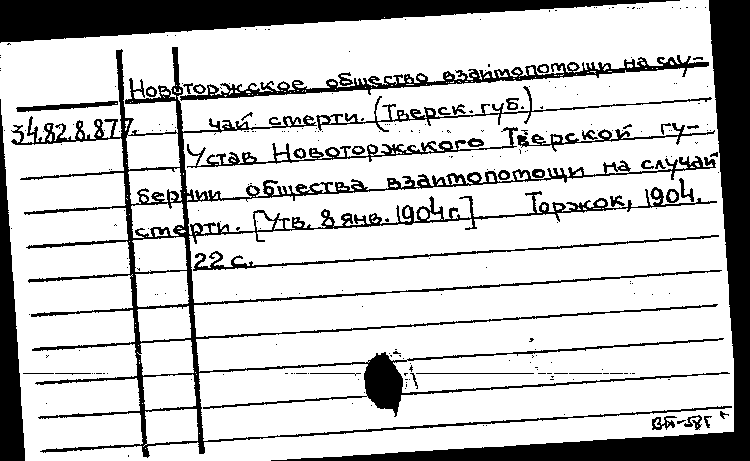 Новоторжское общество взаимопомощи на слу-
34.82.8.877. чай смерти. (Тверск. губ.).
Устав Новоторжского Тверской гу-
бернии общества взаимопомощи на случай
смерти. [Утв. 8 янв. 1904 г.] Торжок, 1904.
22 с.